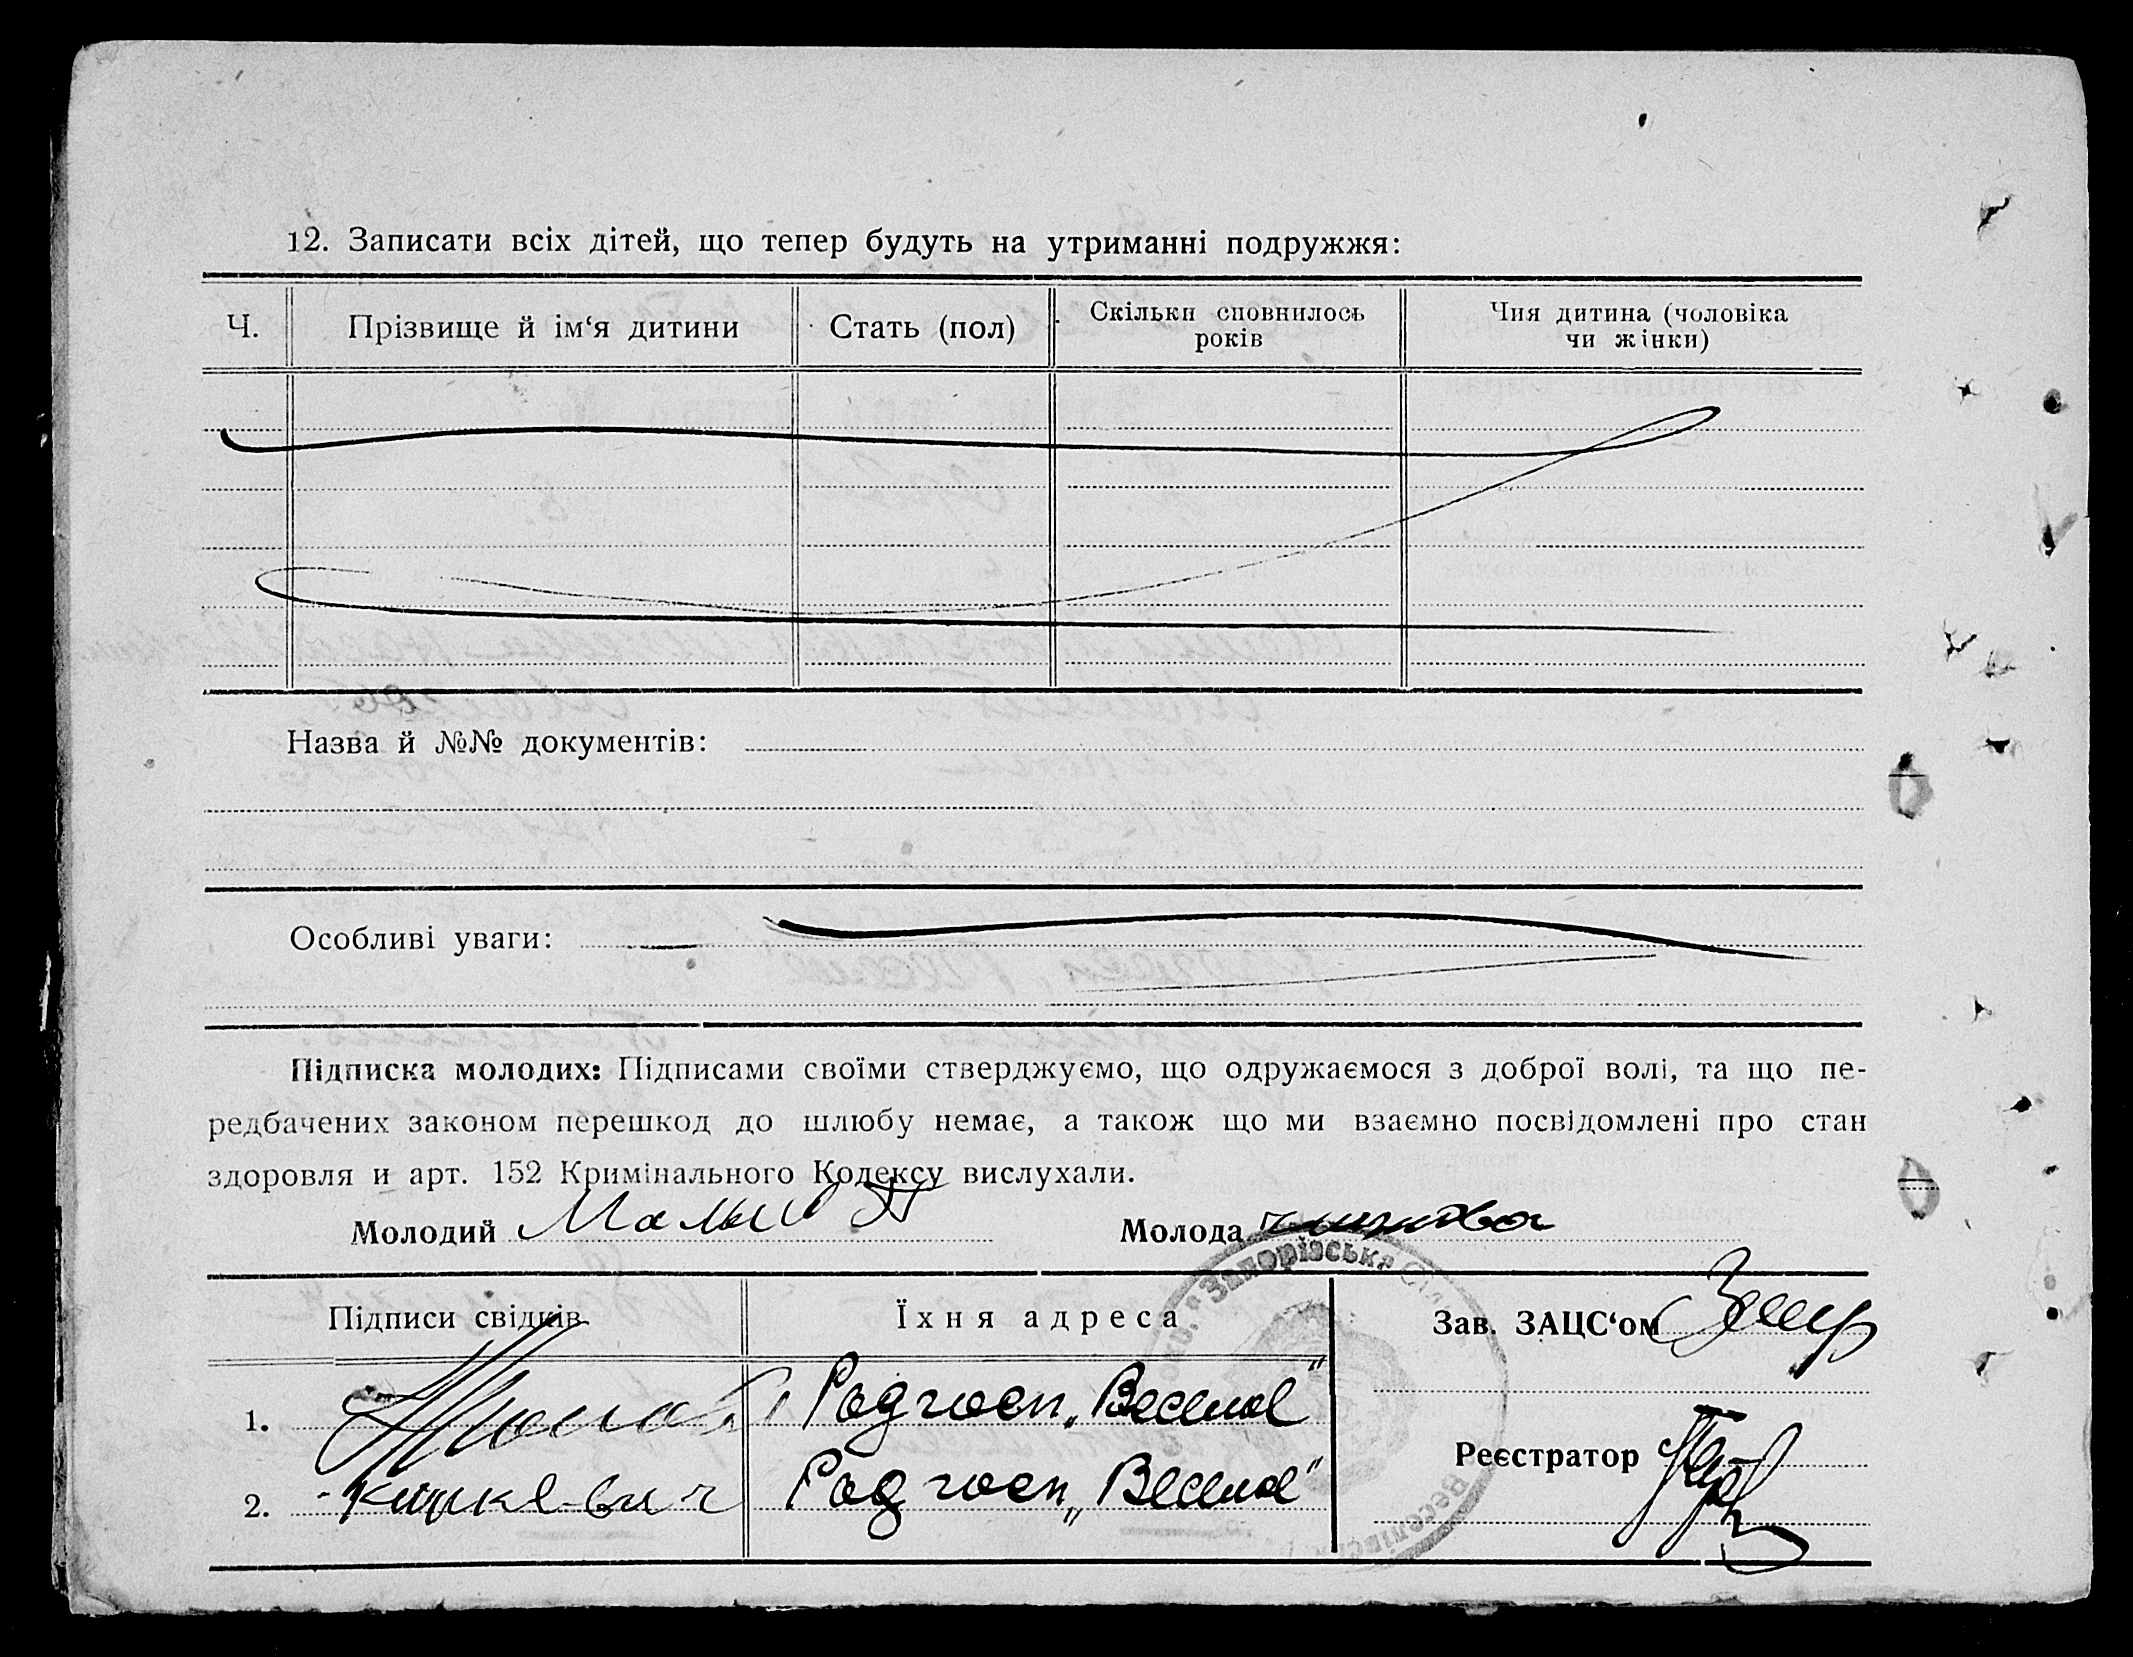 12. Записати всіх дітей, що тепер будуть на утриманні подружжя:
Ч.
Прізвище й ім‘я дитини
Стать (пол)
Скільки сповнилось
років
Чия дитина (чоловіка
чи жінки)
Назва й №№ документів:
Особливі уваги:
Підписка молодих: Підписами своїми стверджуємо, що одружаємося з доброї волі, та що пе-
редбачених законом перешкод до шлюбу немає, а також що ми взаємно посвідомлені про стан
здоровля и арт. 152 Кримінального Кодексу вислухали.
Молодий
Молода
Запорізська
Веселівськ
Підписи свідків
Їхня адреса
Зав. ЗАЦС‘ом
1. Радгосп „Веселое"
2. Радгосп „Веселое"
Реєстратор